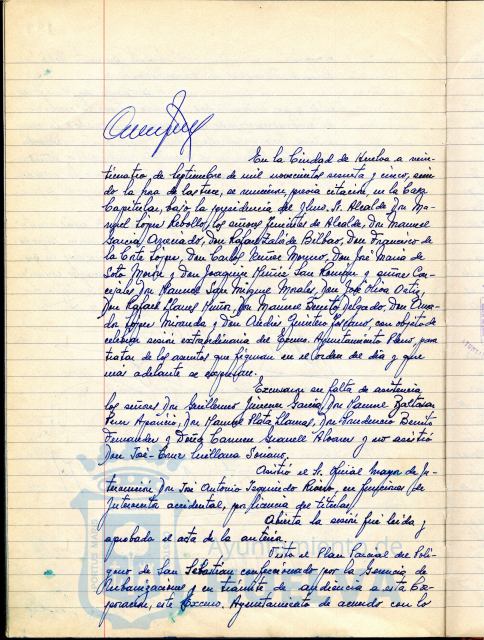 En la Ciudad de Huelva a vein-
ticuatro de Septiembre de mil novecientos sesenta y cinco, sien-
do la hora de las trece, se reunieron previa citación, en la Casa
Capitular, bajo la presidencia del Ilmo. Sr. Alcalde Don Ma-
nuel López Rebollo, los señores Tenientes de Alcalde, Don Manuel
García Don Rafael de Bilbao, Don Francisco de
la Corte López, Don Carlos Moreno, Don José María de
Soto Don Joaquín San Román y señores Con-
cejales Don Manuel San Miguel Morales, Don José Oliva Ortiz,
Don Rafael Llanes Muñoz, Don Manuel Delgado, Don Ama-
dor López Miranda y Don Quintero con objeto de
celebrar sesión extraordinaria del Excmo. Ayuntamiento Pleno, para
tratar de los asuntos que figuran en el orden del día y que
más adelante se expresan.
Excusaron su falta de asistencia
los señores Don Guillermo Jimenez García, Don Manuel Baltasar
Pérez Aparicio, Don Manuel Plata Llamas, Don Prudencio Benito
Fernandez y Doña Carmen Granell Alvarez y no asistió
Don José Cruz Orellana Soriano.
Asistió el Sr. Oficial mayor de In-
tervención Don José Antonio Izquierdo Rivero, en funciones de
Interventor accidental, por licencia del titular.
Abierta la sesión fué leída y
aprobada el acta de la anterior.
Visto el Plan Parcial del Polí-
gono de San Sebastián confeccionado por la Gerencia de
Urbanizaciones y en trámite de audiencia a esta Cor-
poración, este Excmo. Ayuntamiento de acuerdo con lo
Ayuntamiento de